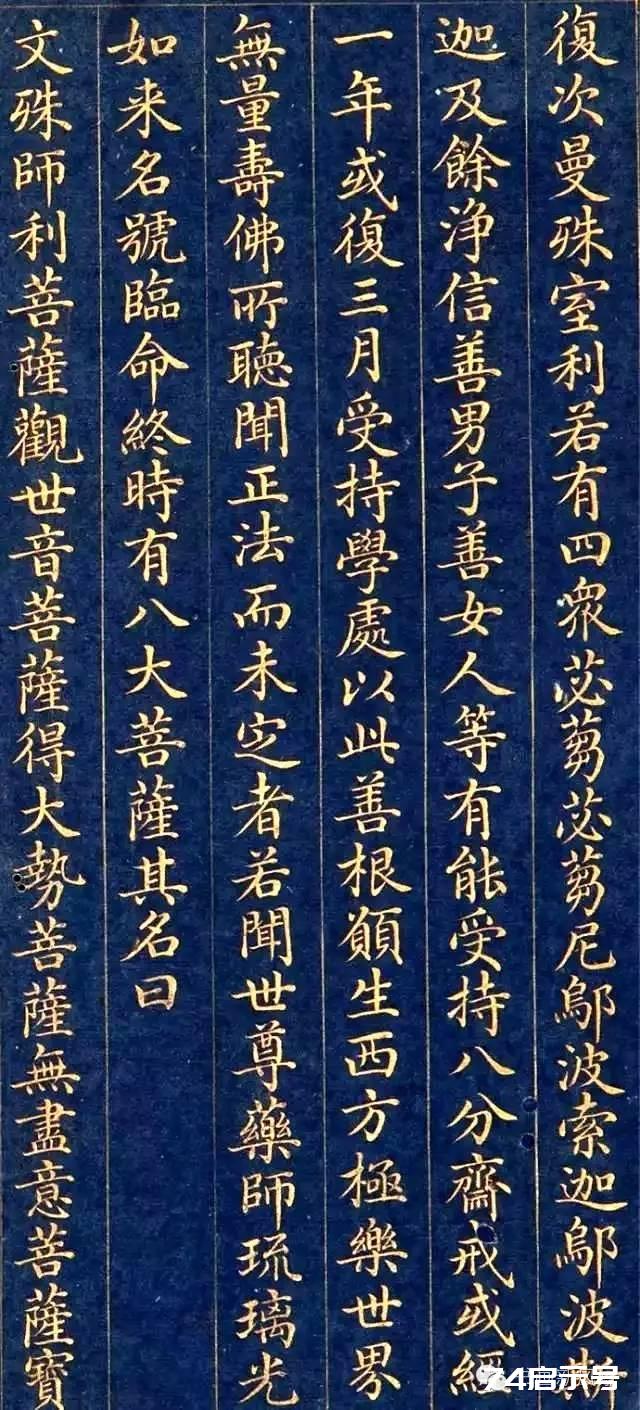 復次曼殊室利若有四衆苾芻苾芻尼鄔波索迦鄔波斯
迦及餘浄信善男子善女人等有能受持八分齋戒或經
一年或復三月受持學處以此善根願生西方極樂世界
無量壽佛所聴聞正法而未定者若聞世尊藥師琉璃光
如来名號臨命終時有八大菩薩其名曰
文殊師利菩薩觀世音菩薩得大勢菩薩無盡意菩薩寶
74启示号